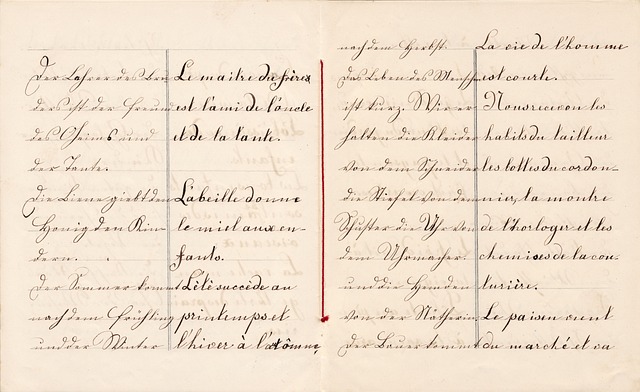 Der Lehrer des Bru
ders ist der Freund
des Oheims und
der Tante.
Die Biene giebt den
Honig den Kin-
dern.
Der Sommer kommt
nach dem Frühling
und der Winter
Le maitre du frère
est l'ami de l'oncle
et de la tante.
L'abeille donne
le miel aux en-
fants.
L'été succède au
printemps et
l'hiver à l'
nach dem Herbst.
Das Leben des Mensch
ist kurz. Wir er
halten die Kleider
von dem Schneider
die Stiefel von dem
Schuster die Uhr von
dem Uhrmacher.
und die Hemden
von der Nätherin
Der Bauer kommt
La vie de l'homme
est courte.
Nous recevon les
habits du tailleur
les bottes du cordon-
nier, la montre
de l'horloger et les
chemises de la cou-
turière.
Le paisen vient
du marché et va